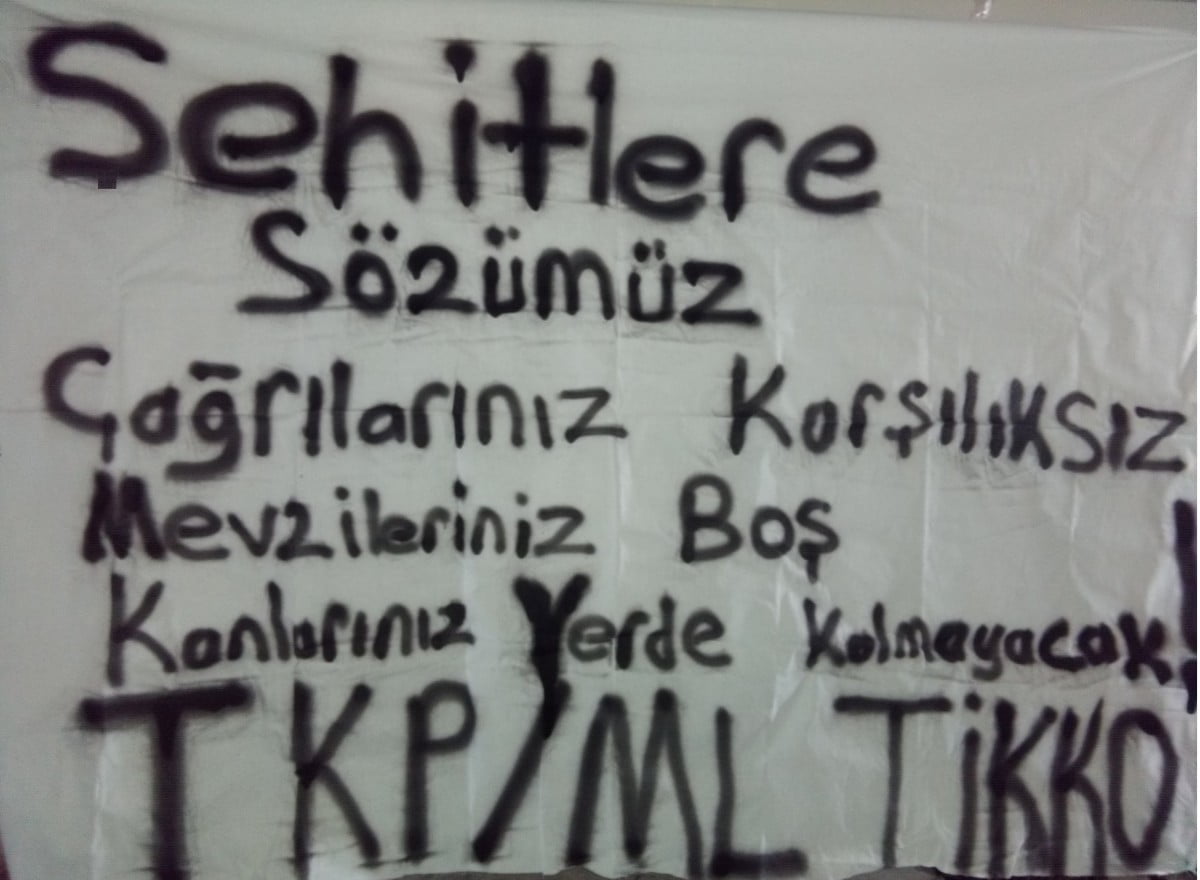 Şehitlere
Sözümüz
Çağrılarınız Karşılıksız
Mevzileriniz Boş
Kanlarınız Yerde Kalmayacak!
TKP/ML TİKKO